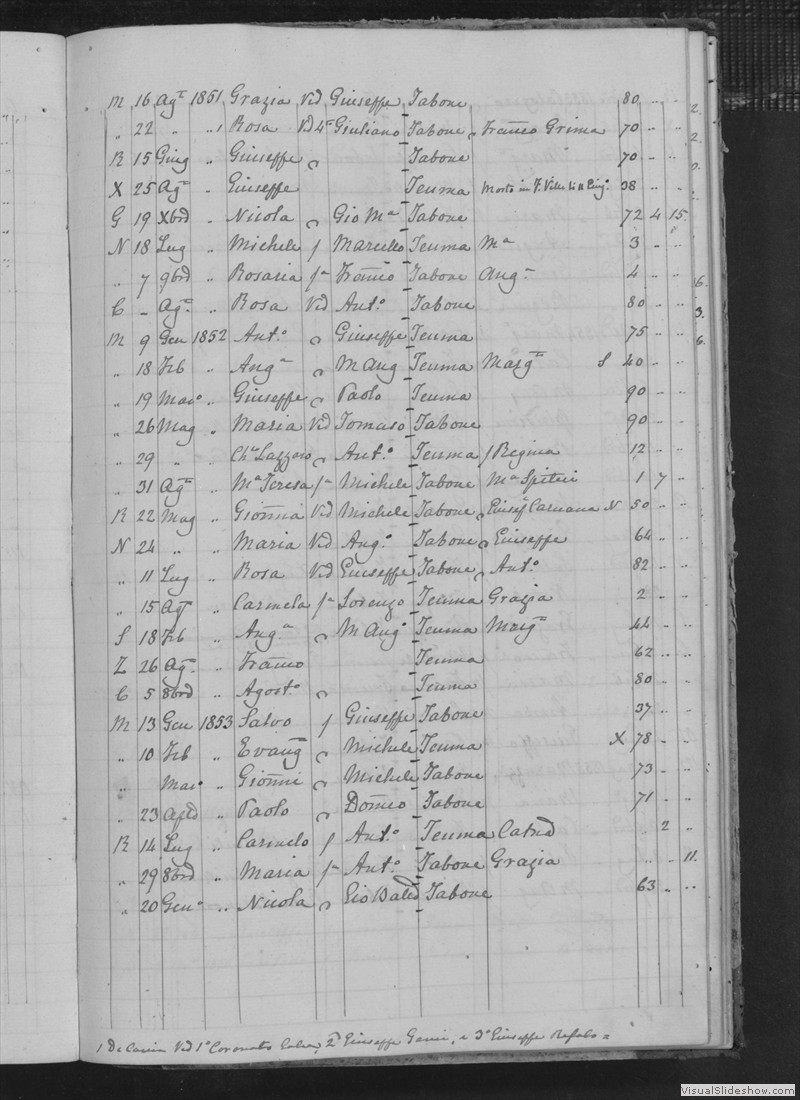 M 16 Agt 1851 Grazia Vid Giuseppe Tabone 80 .. ..
" 22 " ..1 Rosa Vid 4º Giuliano Tabone Franco Grima 70 .. ..
R 15 Giug .. Giuseppe Tabone 70 .. ..
X 25 Ago .. Giuseppe Teuma Morto in F. 38 .. ..
G 19 Xbrd .. Nicola Gio Mª Tabone 72 4 15.
N 18 Lug .. Michele f Marcello Teuma Mª 3 .. ..
" 7 9brd .. Rosaria fª Franco Tabone Angª 4 .. ..
C - Agº .. Rosa Vid Antº Tabone 80 .. ..
M 9 Gen 1852 Antº Giuseppe Teuma 75 .. ..
" 18 Feb .. Angª M Ang Teuma Margª S 40 .. ..
" 19 Marº .. Giuseppe Paolo Teuma 90 .. ..
" 26 Mag .. Maria Vid Tomaso Tabone 90 .. ..
" 29 " .. Lazzaro Antº Teuma f Regina 12 .. ..
" 31 Agº .. Mª Teresa fª Michele Tabone Mª Spiteri 1 7 ..
R 22 Mag .. Gionnia Vid Michele Tabone Giusep Caruana N 50 .. ..
N 24 " .. Maria Vid Angº Tabone Giuseppe 64 .. ..
" 11 Lug .. Rosa Vid Giuseppe Tabone Antº 82 .. ..
" 15 Agº .. Carmela fª Lorenzo Teuma Grazia 2 .. ..
S 18 Feb .. Angª M Angº Teuma Margª 44 .. ..
Z 26 Agº .. Franco Teuma 62 .. ..
C 5 8brd .. Agostº Teuma 80 .. ..
M 13 Gen 1853 Salvo f Giuseppe Tabone 37 .. ..
" 10 Feb .. Evang Michele Teuma X 78 .. ..
Marº .. Gionni Michele Tabone 73 .. ..
" 23 Apld .. Paolo Domco Tabone 71 .. ..
R 14 Lug .. Carmelo f Antº Teuma Catnd .. 2 ..
" 29 8brd .. Maria fª Antº Tabone Grazia .. .. 11.
" 20 Genº .. Nicola Gio Tabone 63 .. ..
1 Vid 1º Coronato 2º Giuseppe e 3º Giuseppe Refalo =
VisualSlideshow.com